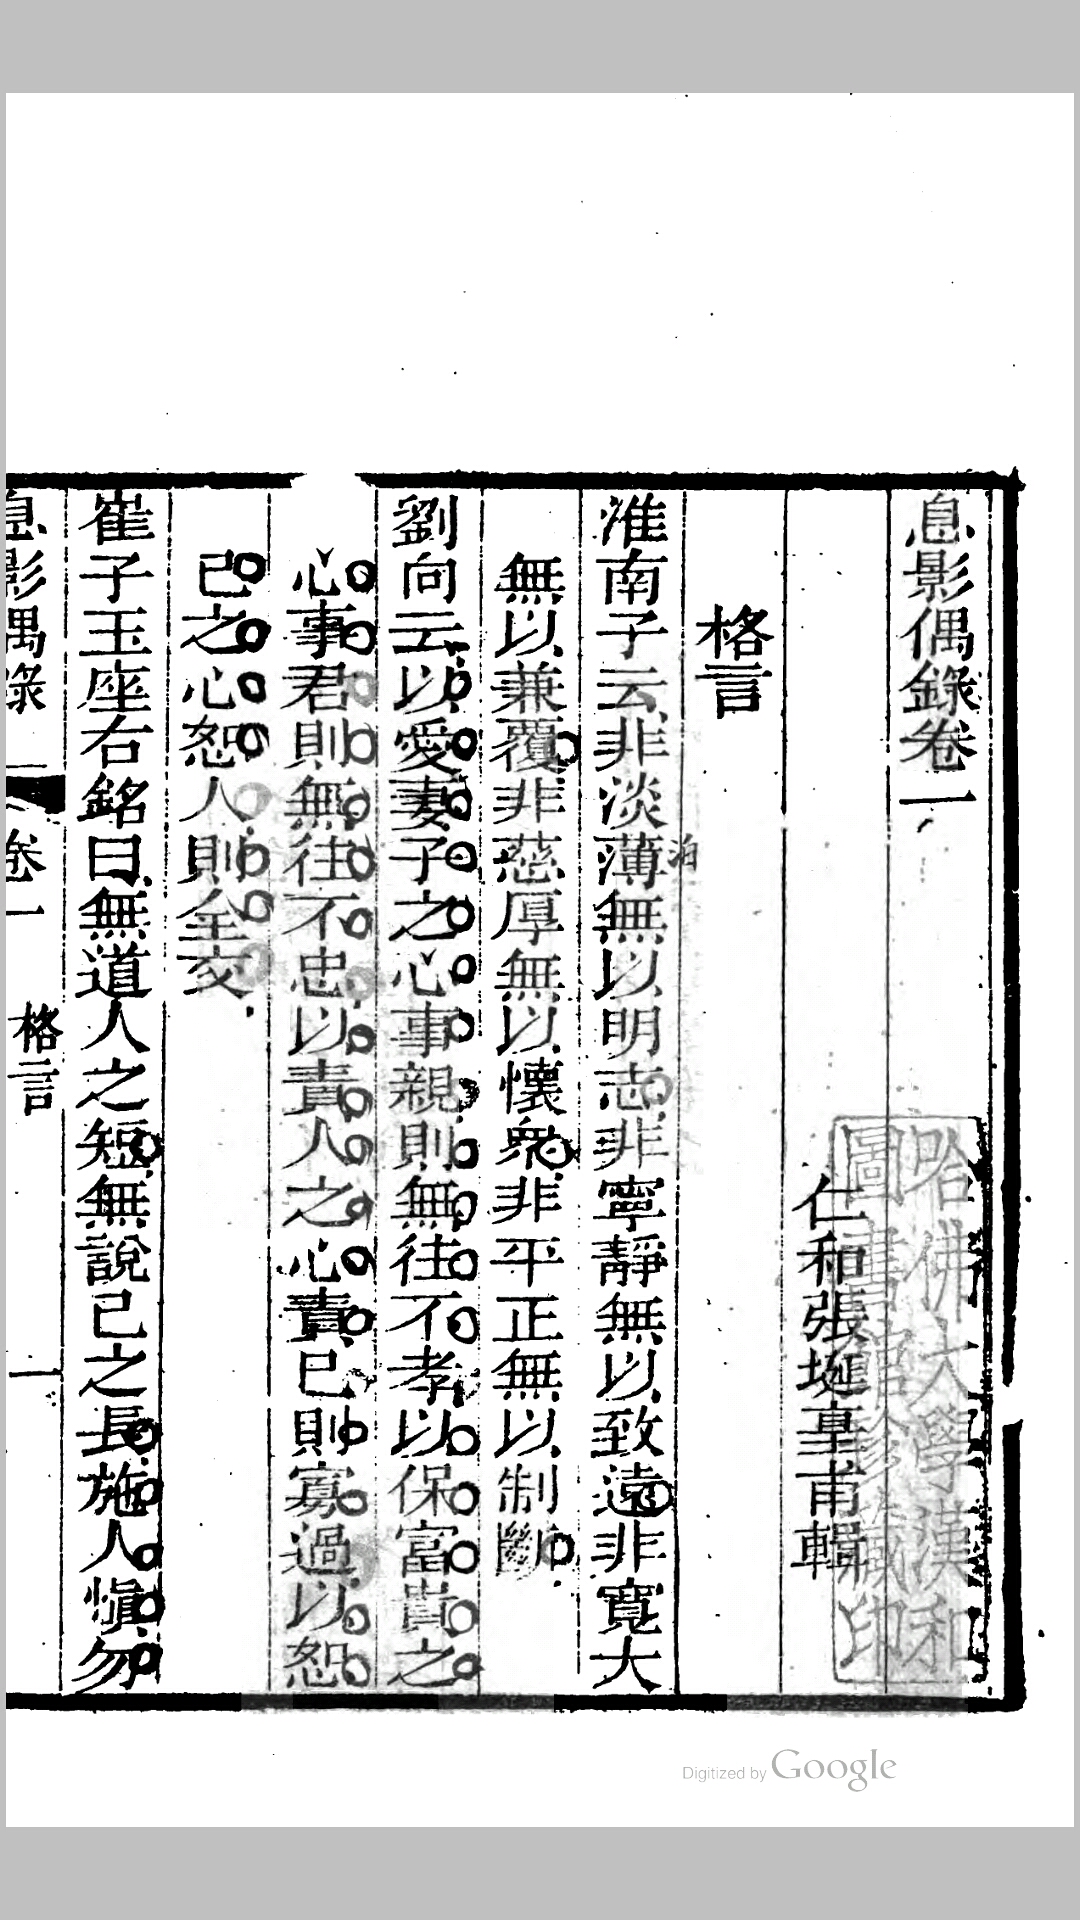 息影偶錄卷一
仁和張埏𦤎甫輯
格言
淮南子云非淡薄無以明志非寧靜無以致遠非寬大
泊
無以兼覆非慈厚無以懷衆非平正無以制斷
劉向云以愛妻子之心事親則無往不孝以保富貴之
心事君則無往不忠以責人之心責已則寡過以恕
已之心恕人則全交
崔子玉座右銘曰無道人之短無說己之長施人慎勿
息影偶錄 卷一 格言 一
哈佛大學漢和
圖書館珍藏印
Digitized by Google